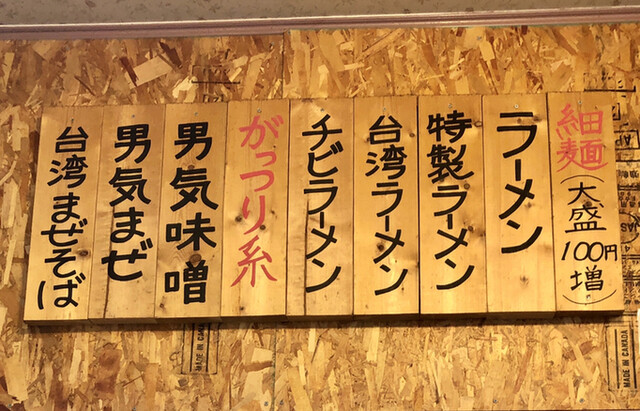 細麺
(大盛100円増)
ラーメン
特製ラーメン
台湾ラーメン
チビラーメン
がっつり系
男気味噌
男気まぜ
台湾まぜそば
MADE IN CANADA
MADE IN CANADA